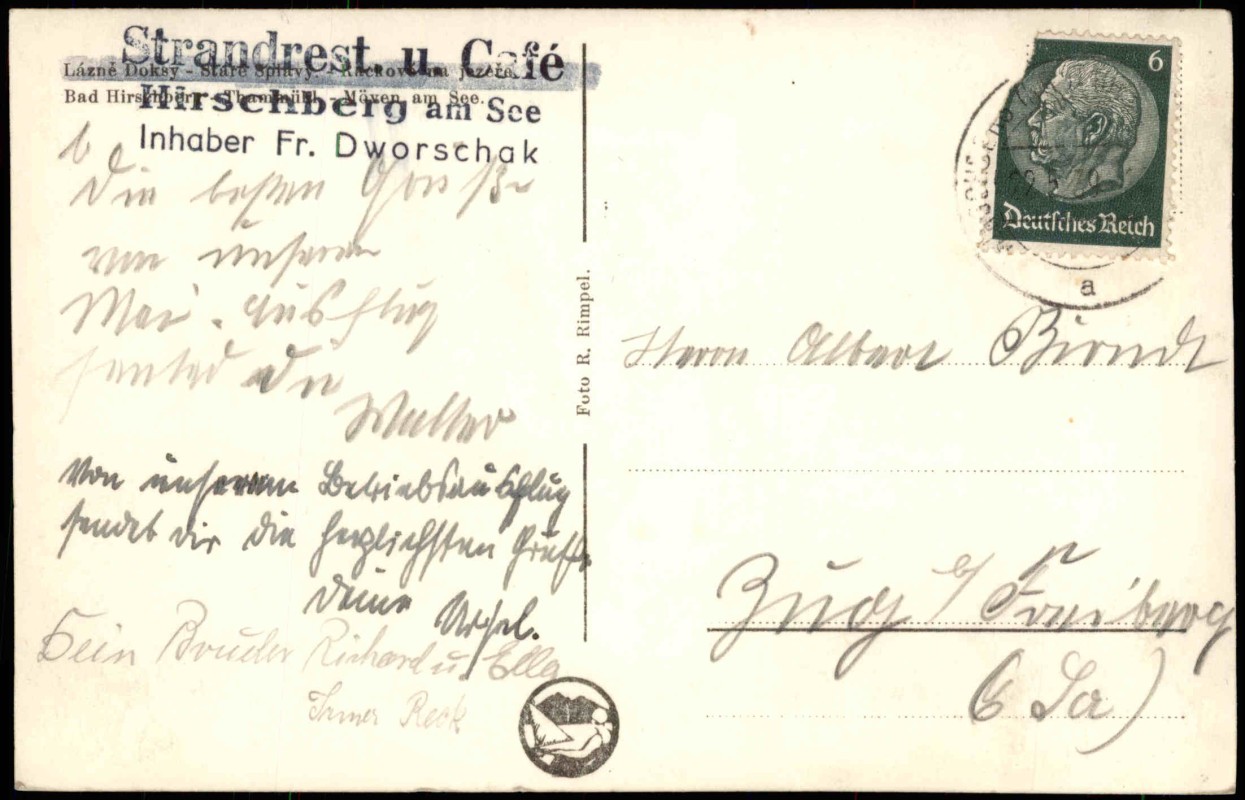 Strandrest. u. Café
Lázně Doksy - Staré Splavy - Rackové na jezeře.
Bad Hirschberg - Thammühl - Möven am See.
Hirschberg am See
Inhaber Fr. Dworschak
Die besten Grüße
von unserem
Mai-Ausflug
sendet Dir
Walter
Von unserem Betriebsausflug
sendet dir die herzlichsten Grüße
deine Ursel.
Dein Bruder Richard u. Ella
Foto R. Rimpel.
6
Deutsches Reich
a
Herrn Albert
Zug b/ Freiberg
(Sa)